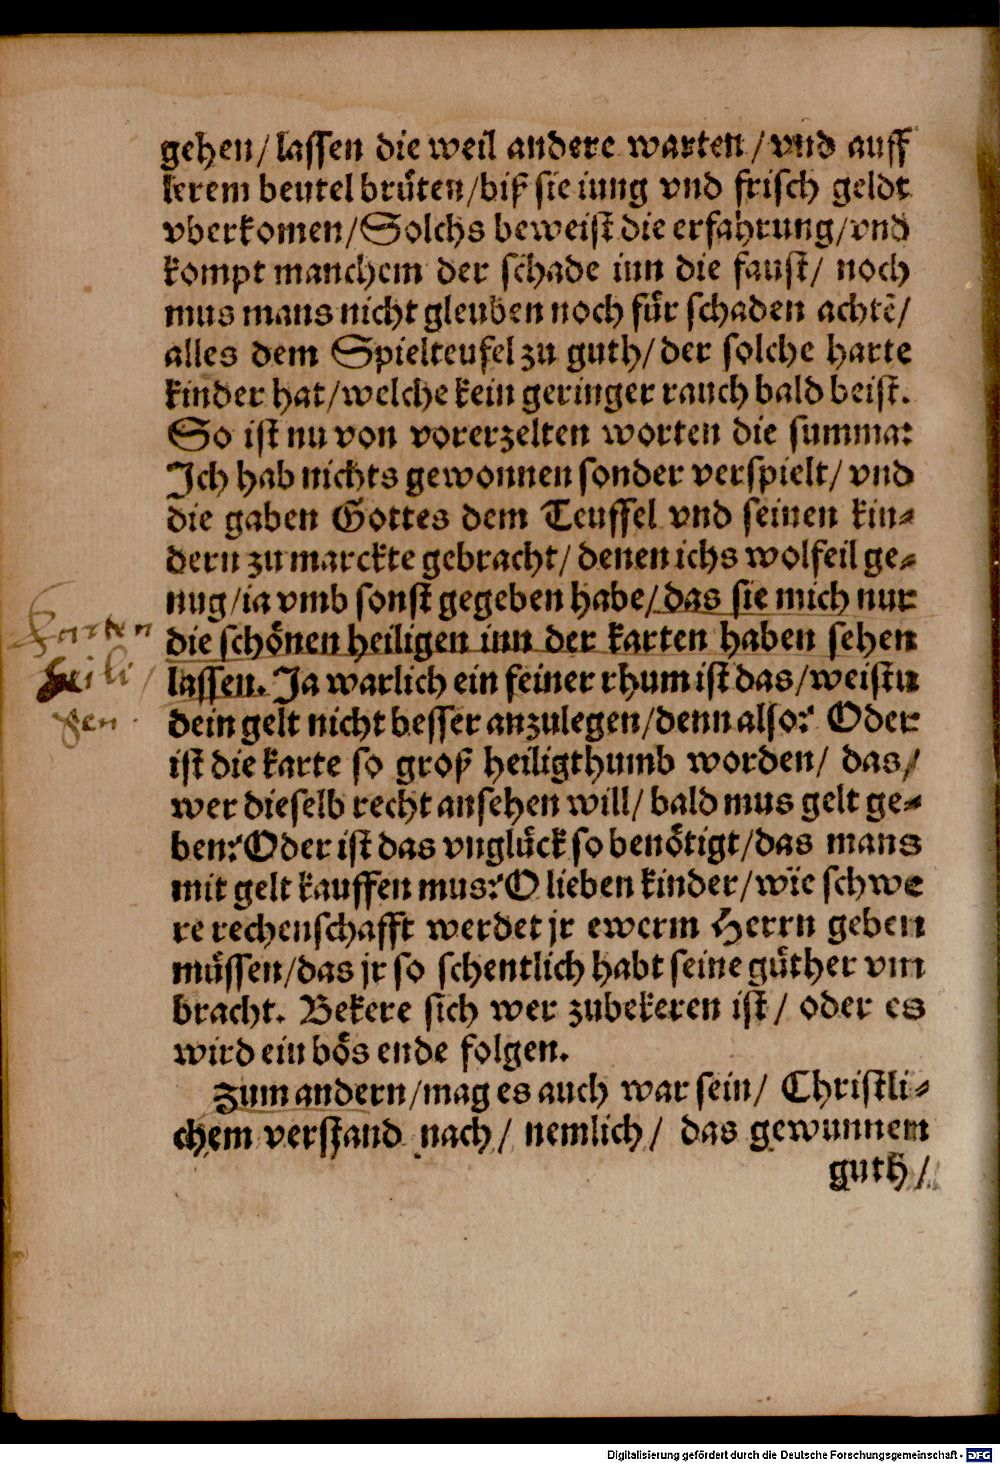 gehen/ lassen die weil andere warten/ vnd auff
lerem beutel bruͤten/ biß sie iung vnd frisch geldt
vberkomen/ Solchs beweist die erfahrung/ vnd
kompt manchem der schade inn die faust/ noch
mus mans nicht gleuben noch fuͤr schaden achtē/
alles dem Spielteufel zu guth/ der solche harte
kinder hat/ welche kein geringer rauch bald beist.
So ist nu von vorerzelten worten die summa:
Ich hab nichts gewonnen sonder verspielt/ vnd
die gaben Gottes dem Teuffel vnd seinen kin⸗
dern zu marckte gebracht/ denen ichs wolfeil ge⸗
nug/ ia vmb sonst gegeben habe/ das sie mich nur
die schoͤnen heiligen inn der karten haben sehen
lassen. Ja warlich ein feiner rhum ist das/ weistu
dein gelt nicht besser anzulegen/ denn also? Oder
ist die karte so groß heiligthumb worden/ das/
wer dieselb recht ansehen will/ bald mus gelt ge⸗
ben? Oder ist das vngluͤck so benoͤtigt/ das mans
mit gelt kauffen mus? O lieben kinder/ wie schwe
re rechenschafft werdet jr ewerm Herrn geben
muͤssen/ das jr so schentlich habt seine guͤther vm
bracht. Bekere sich wer zubekeren ist/ oder es
wird ein boͤs ende folgen.
Zum andern/ mag es auch war sein/ Christli⸗
chem verstand nach/ nemlich/ das gewunnem
guth/
Karten
heili
gen
Digitalisierung gefördert durch die Deutsche Forschungsgemeinschaft - DFG